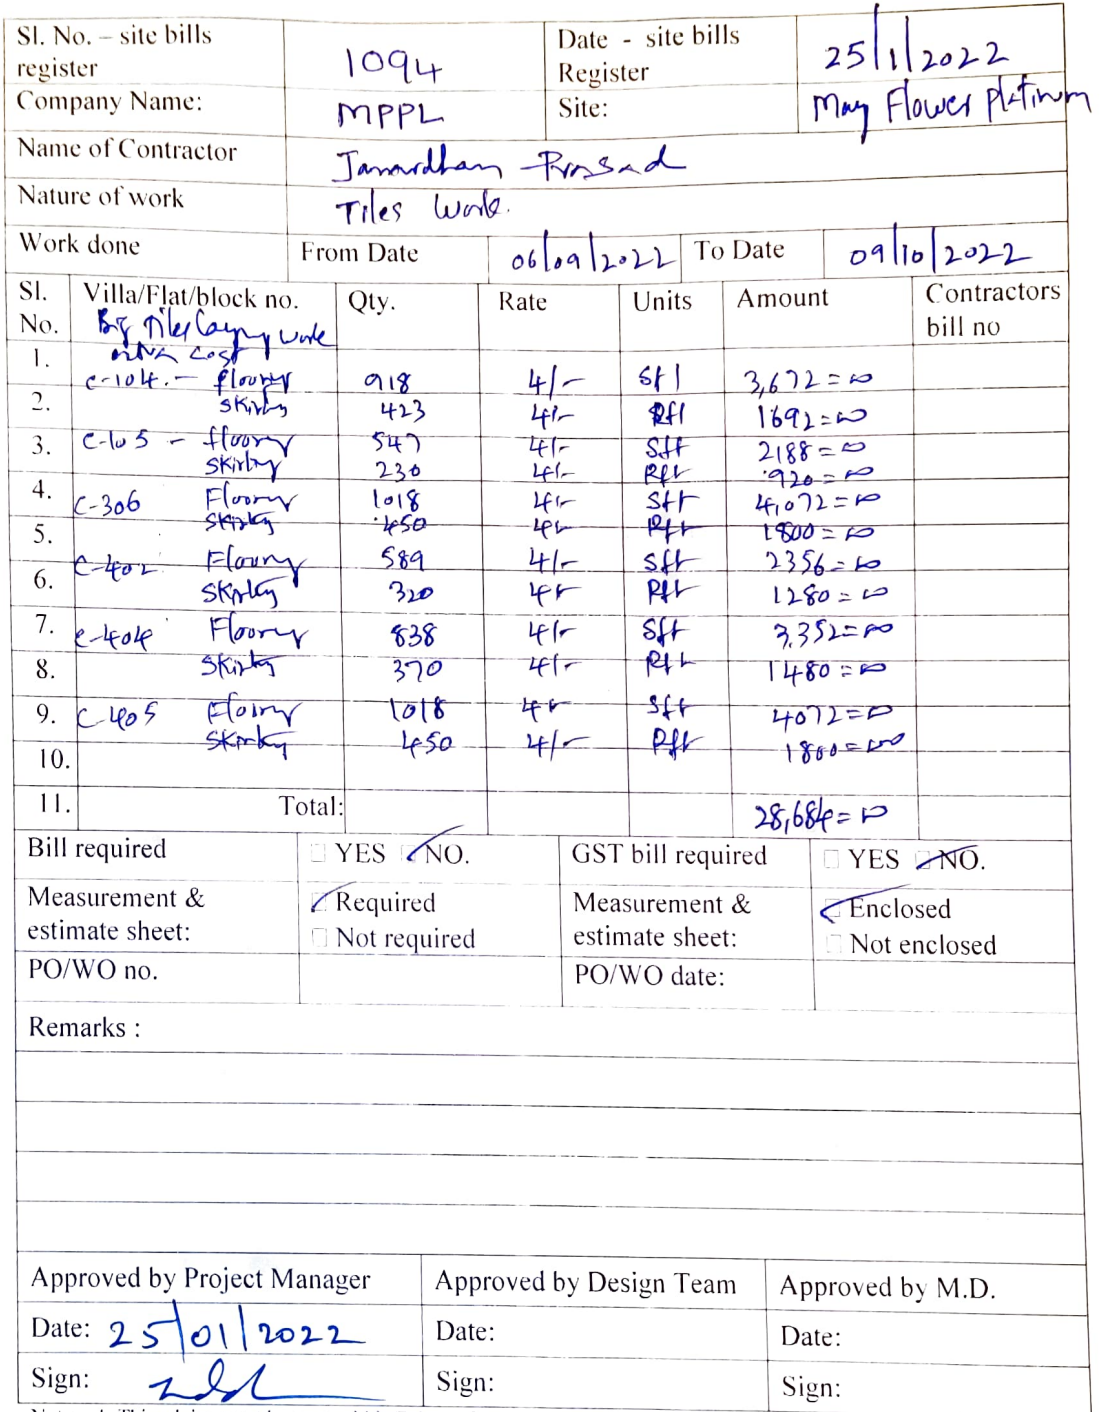 Sl. No. – site bills register 1094 Date - site bills Register 25/1/2022
Company Name: MPPL Site: May Flower Platinum
Name of Contractor Janardhan Prasad
Nature of work Tiles Work.
Work done From Date 06/09/2022 To Date 09/10/2022
Sl. No. Villa/Flat/block no. Qty. Rate Units Amount Contractors bill no
Big Tiles Laying work
extra cost
1. C-104. - flooring 918 4/- Sft 3,672=00
2. Skirting 423 4/- Rft 1692=00
3. C-105 - flooring 547 4/- Sft 2188=00
Skirting 230 4/- Rft 920=00
4. C-306 Flooring 1018 4/- Sft 4,072=00
5. Skirting 450 4/- Rft 1800=00
C-402 Flooring 589 4/- Sft 2356=00
6. Skirting 320 4/- Rft 1280=00
7. C-404 Flooring 838 4/- Sft 3,352=00
8. Skirting 370 4/- Rft 1480=00
9. C-405 Flooring 1018 4/- Sft 4072=00
Skirting 450 4/- Rft 1800=00
10.
11. Total: 28,684=00
Bill required YES NO. GST bill required YES NO.
Measurement & estimate sheet: Required Measurement & estimate sheet: Enclosed
Not required Not enclosed
PO/WO no. PO/WO date:
Remarks :
Approved by Project Manager Approved by Design Team Approved by M.D.
Date: 25/01/2022 Date: Date:
Sign: Sign: Sign: